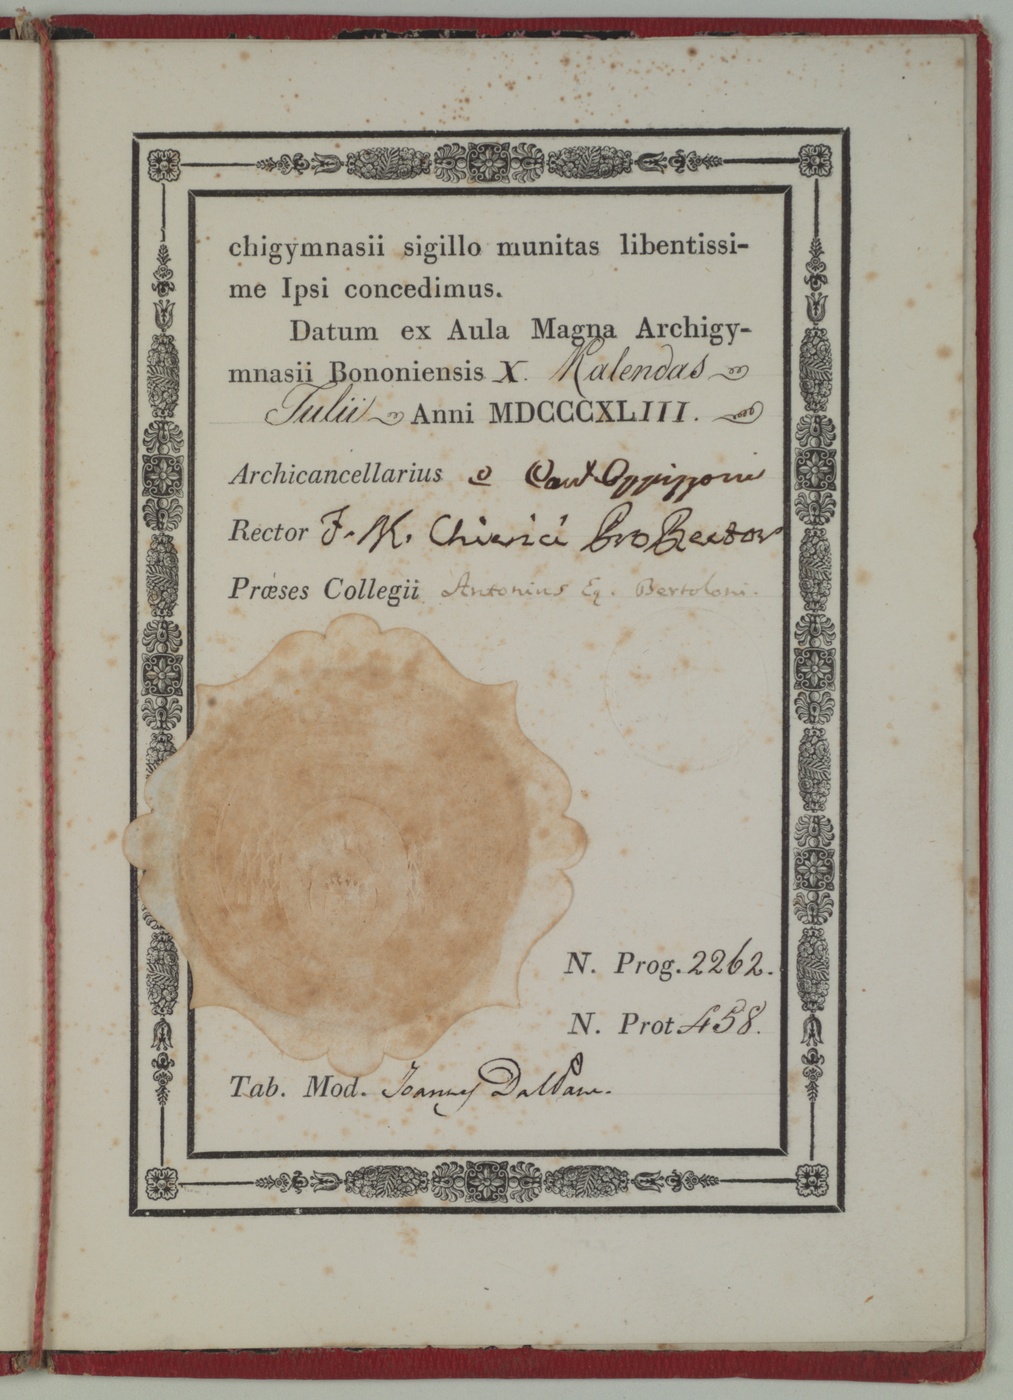 chigymnasii sigillo munitas libentissi-
me Ipsi concedimus.
Datum ex Aula Magna Archigy-
mnasii Bononiensis X. Kalendas
Iulii Anni MDCCCXLIII.
Archicancellarius C Card Oppizzoni
Rector F. M. Chierici Pro Rector
Præses Collegii Antonius Eq. Bertoloni.
N. Prog. 2262.
N. Prot. 458.
Tab. Mod. Joannes